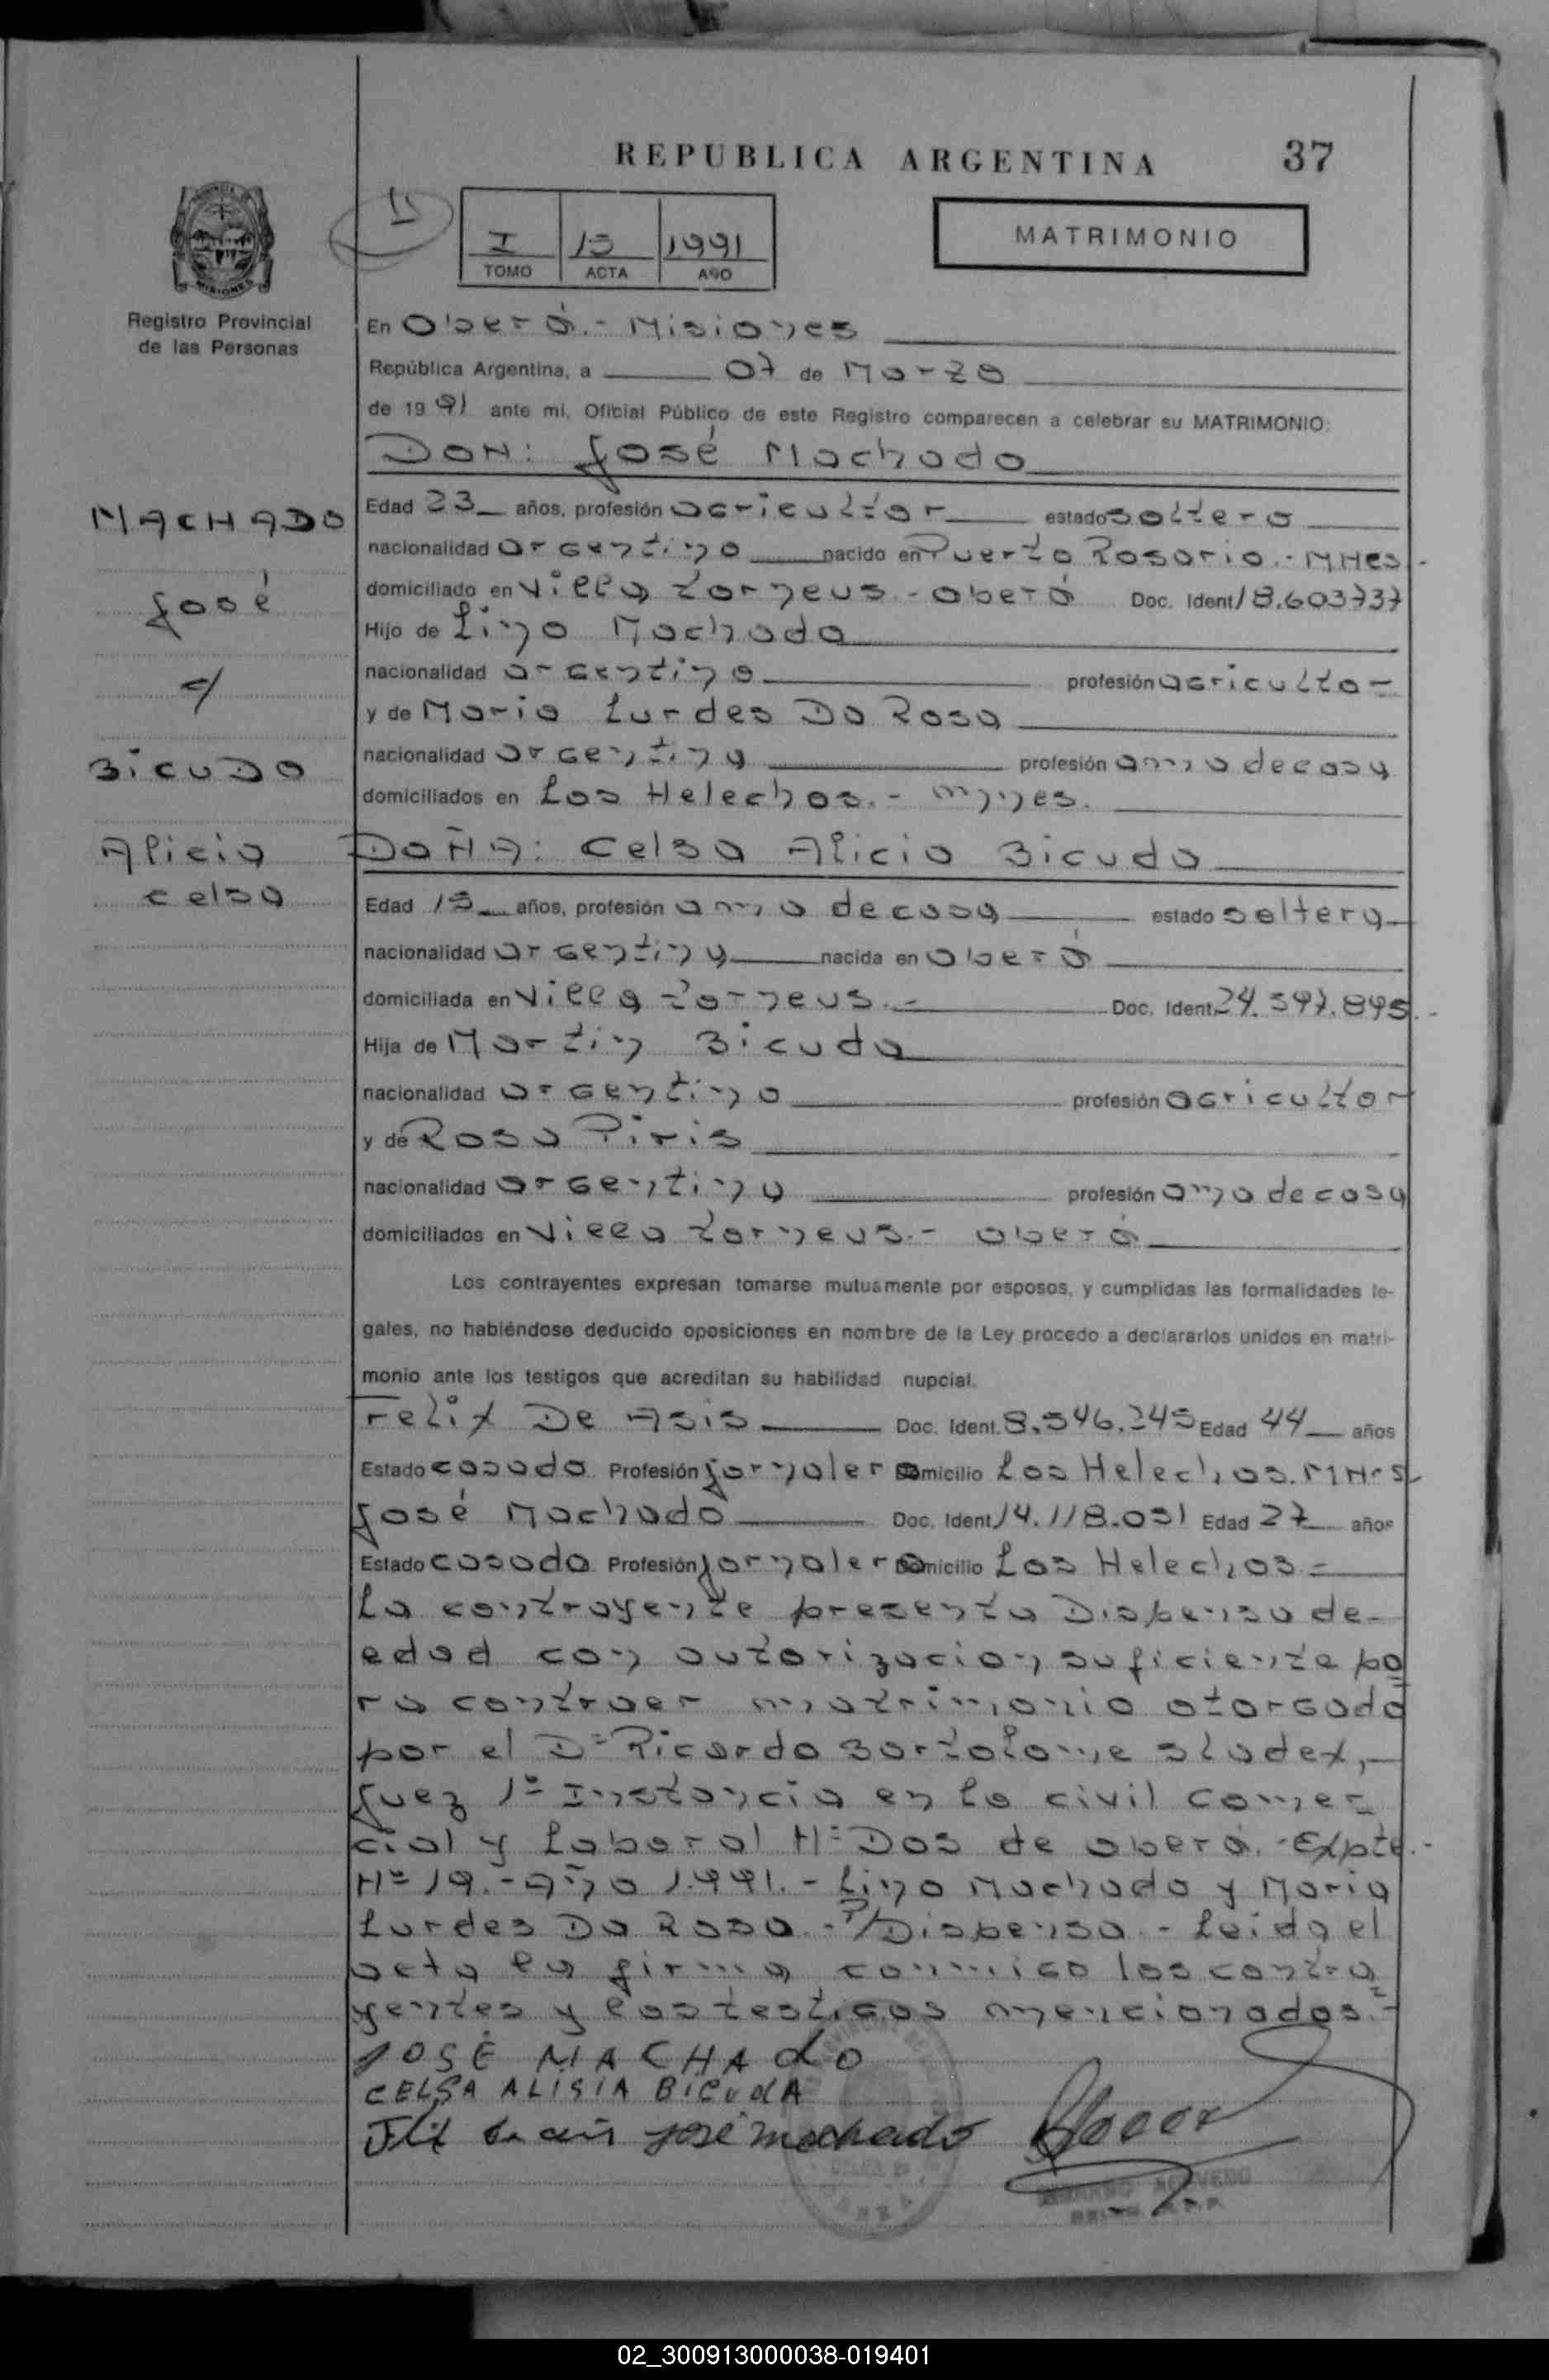 REPUBLICA ARGENTINA
37
15
I
15
1991
TOMO
ACTA
AÑO
MATRIMONIO
Registro Provincial
de las Personas
MACHADO
José
c/
BICUDO
Alicia
Celsa
En Oberá.- Misiones
República Argentina, a 07 de Marzo
de 1991 ante mi, Oficial Público de este Registro comparecen a celebrar su MATRIMONIO:
DON: José Machado
Edad 23 años, profesión agricultor estado soltero
nacionalidad argentino nacido en Puerto Rosario.- MNes.-
domiciliado en Villa Torneus - Oberá Doc. Ident 18.603737
Hijo de Lino Machado
nacionalidad argentino profesión agricultor
y de Maria Lurdes Da Rosa
nacionalidad argentina profesión ama de casa
domiciliados en Los Helechos.- Mnes.
DOÑA: Celsa Alicia Bicudo
Edad 15 años, profesión ama de casa estado soltera
nacionalidad argentina nacida en Oberá
domiciliada en Villa Torneus.- Doc. Ident. 24.597.895.-
Hija de Martin Bicudo
nacionalidad argentino profesión agricultor
y de Rosa Piris
nacionalidad argentina profesión ama de casa
domiciliados en Villa Torneus.- Oberá
Los contrayentes expresan tomarse mutuamente por esposos, y cumplidas las formalidades le-
gales, no habiéndose deducido oposiciones en nombre de la Ley procedo a declararlos unidos en matri-
monio ante los testigos que acreditan su habilidad nupcial.
Felix De Asis Doc. Ident. 8.546.245 Edad 44 años
Estado casado Profesión jornalero Domicilio Los Helechos. MNes
José Machado Doc. Ident. 14.118.051 Edad 27 años
Estado casado Profesión jornalero Domicilio Los Helechos.-
La contrayente presenta Dispensa de
edad con autorizacion suficiente pa
ra contraer matrimonio otorgado
por el Dr Ricardo Bartolome Sladex,
Juez 1º Instancia en lo civil comer
cial y Laboral Nº Dos de Oberá.-Expte.-
Nº 19.-Año 1.991.- Lino Machado y Maria
Lurdes Da Rosa.- S/Dispensa.- Leida el
acta la firma conmigo los contra
yentes y los testigos mencionados.-
JOSÉ MACHAdO
CELSA ALISIA BiCudA
Felix de asis José machado
ACEVEDO
02_300913000038-019401